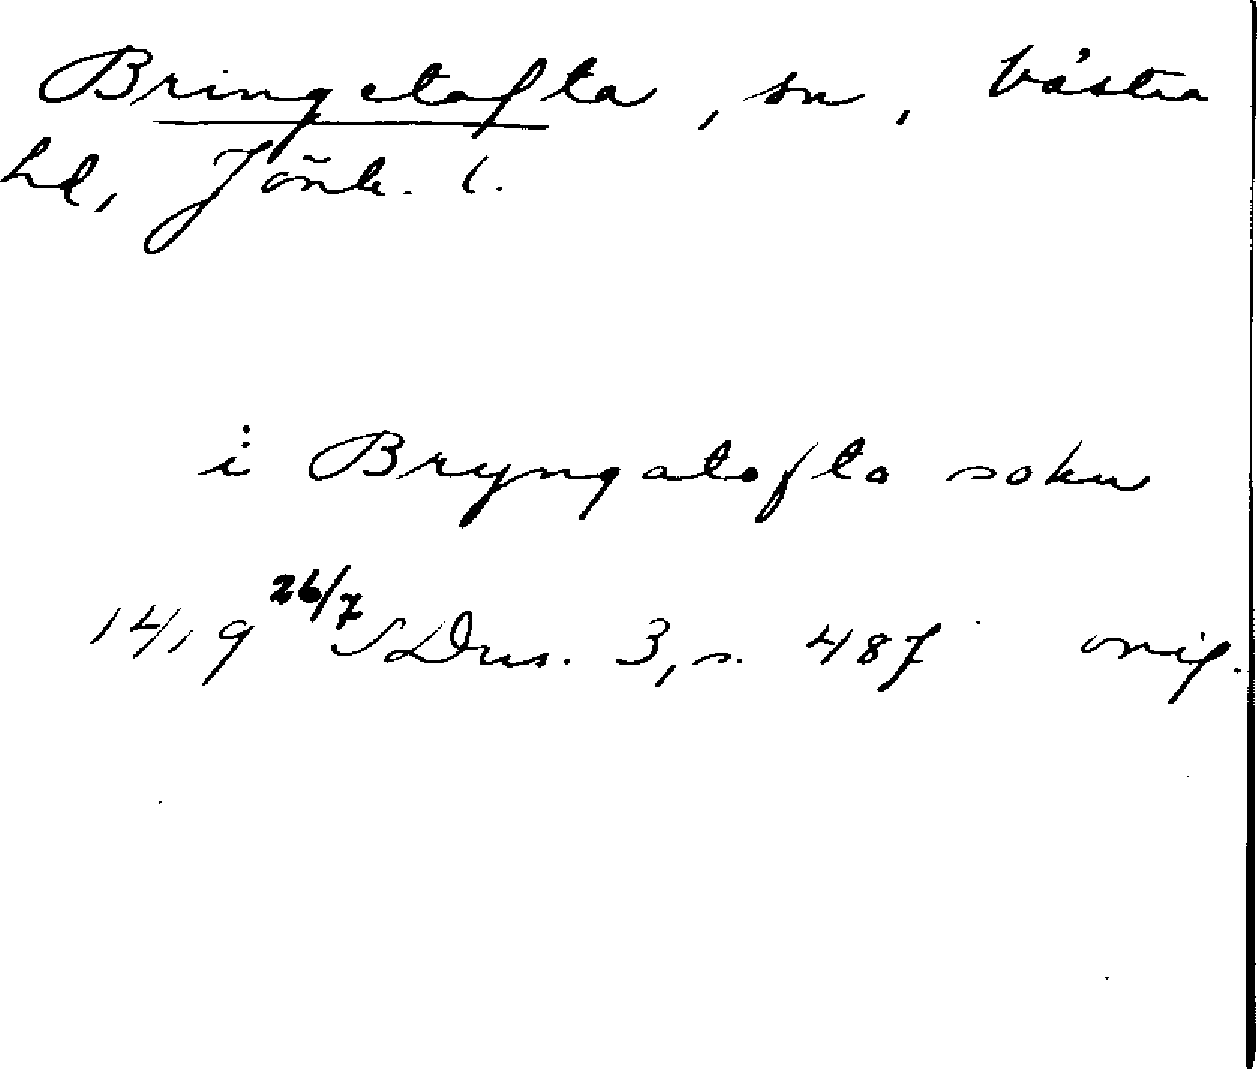 Bringetofta, sn, Västra
hd, Jönk. l.
i Bryngatofto sokn
1419 26/7 SDns. 3, s. 487 orig.